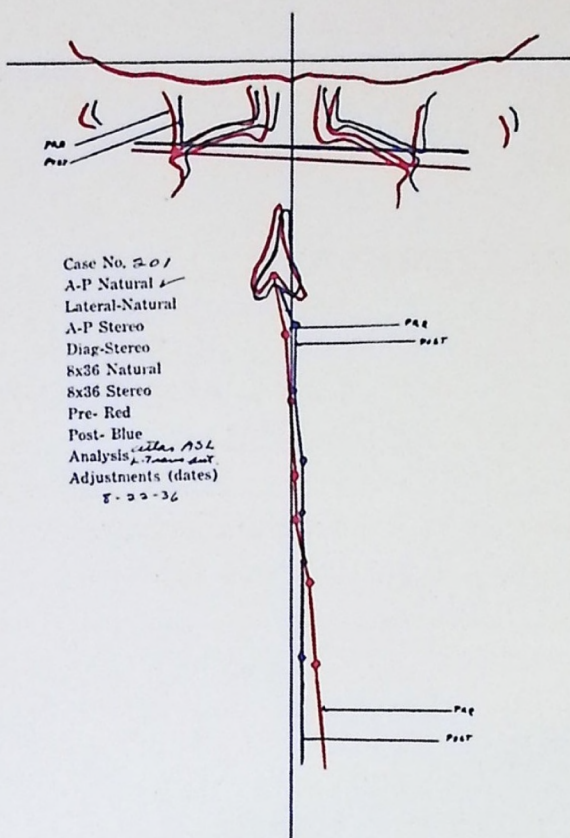 PRE
POST
Case No. 201
A-P Natural ✓
Lateral-Natural
A-P Stereo
Diag-Stereo
8x36 Natural
8x36 Stereo
Pre- Red
Post- Blue
Analysis atlas ASL
Adjustments (dates)
8-22-36
PRE
POST
PRE
POST